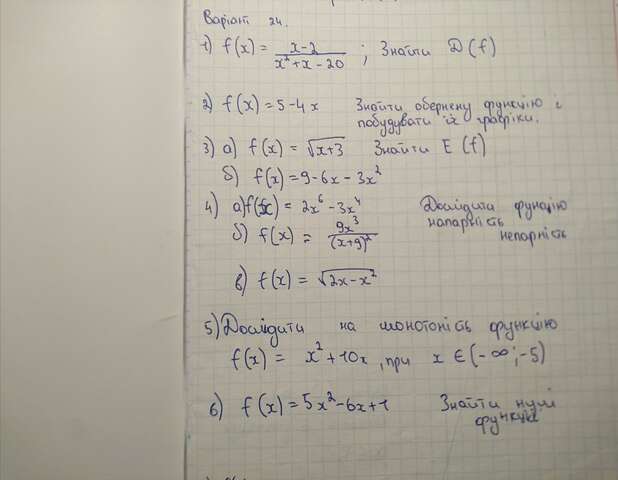 Варіант 24.
1) f(x) = (x-2)/(x²+x-20) ; Знайти D(f)
2) f(x) = 5-4x Знайти обернену функцію і
побудувати їх графіки.
3) а) f(x) = √(x+3) Знайти E(f)
б) f(x) = 9-6x-3x²
4) а) f(x) = 2x⁶-3x⁴ Дослідити функцію
б) f(x) = 9x³/(x+9)² напарність
непарність
в) f(x) = √(2x-x²)
5) Дослідити на монотоність функцію
f(x) = x²+10x, при x ∈ (-∞;-5)
6) f(x) = 5x²-6x+1 Знайти нулі
функції